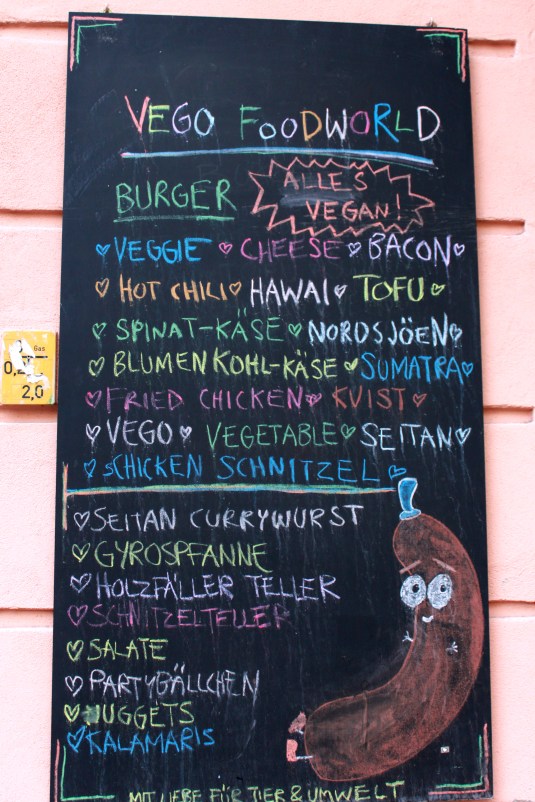 VEGO FOODWORLD
BURGER
ALLES
VEGAN!
VEGGIE CHEESE BACON
HOT CHILI HAWAI TOFU
SPINAT-KÄSE NORDSJÖEN
BLUMENKOHL-KÄSE SUMATRA
FRIED CHICKEN KVIST
VEGO VEGETABLE SEITAN
SCHICKEN SCHNITZEL
SEITAN CURRYWURST
GYROSPFANNE
HOLZFÄLLER TELLER
SCHNITZELTELLER
SALATE
PARTYBÄLLCHEN
NUGGETS
KALAMARIS
MIT LIEBE FÜR TIER & UMWELT
Gas
2,0